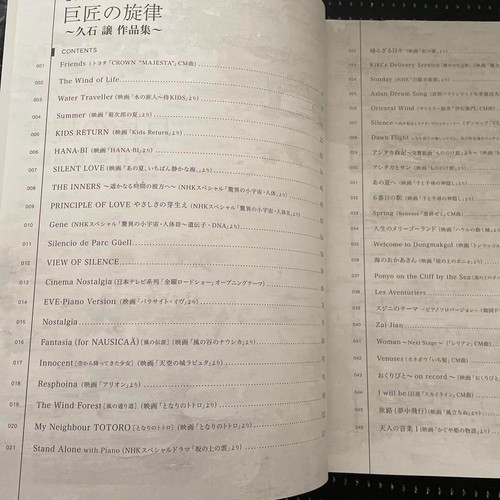 巨匠の旋律
～久石 譲 作品集～
CONTENTS
001 Friends (トヨタ「CROWN "MAJESTA"」CM曲)
002 The Wind of Life
003 Water Traveller (映画「水の旅人～侍KIDS」より)
004 Summer (映画「菊次郎の夏」より)
005 KIDS RETURN (映画「Kids Return」より)
006 HANA-BI (映画「HANA-BI」より)
007 SILENT LOVE (映画「あの夏、いちばん静かな海。」より)
008 THE INNERS ～遥かなる時間の彼方へ～ (NHKスペシャル「驚異の小宇宙・人体」より)
009 PRINCIPLE OF LOVE やさしさの芽生え (NHKスペシャル「驚異の小宇宙・人体Ⅱ」より)
010 Gene (NHKスペシャル「驚異の小宇宙・人体Ⅲ～遺伝子・DNA」より)
011 Silencio de Parc Güell
012 VIEW OF SILENCE
013 Cinema Nostalgia (日本テレビ系列「金曜ロードショー」オープニングテーマ)
014 EVE-Piano Version (映画「パラサイト・イヴ」より)
015 Nostalgia
016 Fantasia (for NAUSICAÄ) [風の伝説] (映画「風の谷のナウシカ」より)
017 Innocent [空から降ってきた少女] (映画「天空の城ラピュタ」より)
018 Resphoina (映画「アリオン」より)
019 The Wind Forest [風の通り道] (映画「となりのトトロ」より)
020 My Neighbour TOTORO [となりのトトロ] (映画「となりのトトロ」より)
021 Stand Alone with Piano (NHKスペシャルドラマ「坂の上の雲」より)
022 帰らざる日々 (映画「紅の豚」より)
Kiki's Delivery Service
Sunday (NHK「日曜美術館」より)
Asian Dream Song
Oriental Wind (サントリー緑茶「伊右衛門」CM曲)
Silence
Dawn Flight
アシタカ𦻙記
アシタカとサン (映画「もののけ姫」より)
あの夏へ (映画「千と千尋の神隠し」より)
6番目の駅 (映画「千と千尋の神隠し」より)
Spring
人生のメリーゴーランド (映画「ハウルの動く城」より)
Welcome to Dongmakgol
海のおかあさん (映画「崖の上のポニョ」より)
Ponyo on the Cliff by the Sea
Les Aventuriers
スジニのテーマ
040 Zai-Jian
041 Woman ～Next Stage～ (「レリアン」CM曲)
042 Venuses (カネボウ「いち髪」CM曲)
043 おくりびと～on record～ (映画「おくりびと」より)
044 I will be (日産「スカイライン」CM曲)
045 旅路 (夢中飛行) (映画「風立ちぬ」より)
046 天人の音楽Ⅰ (映画「かぐや姫の物語」より)